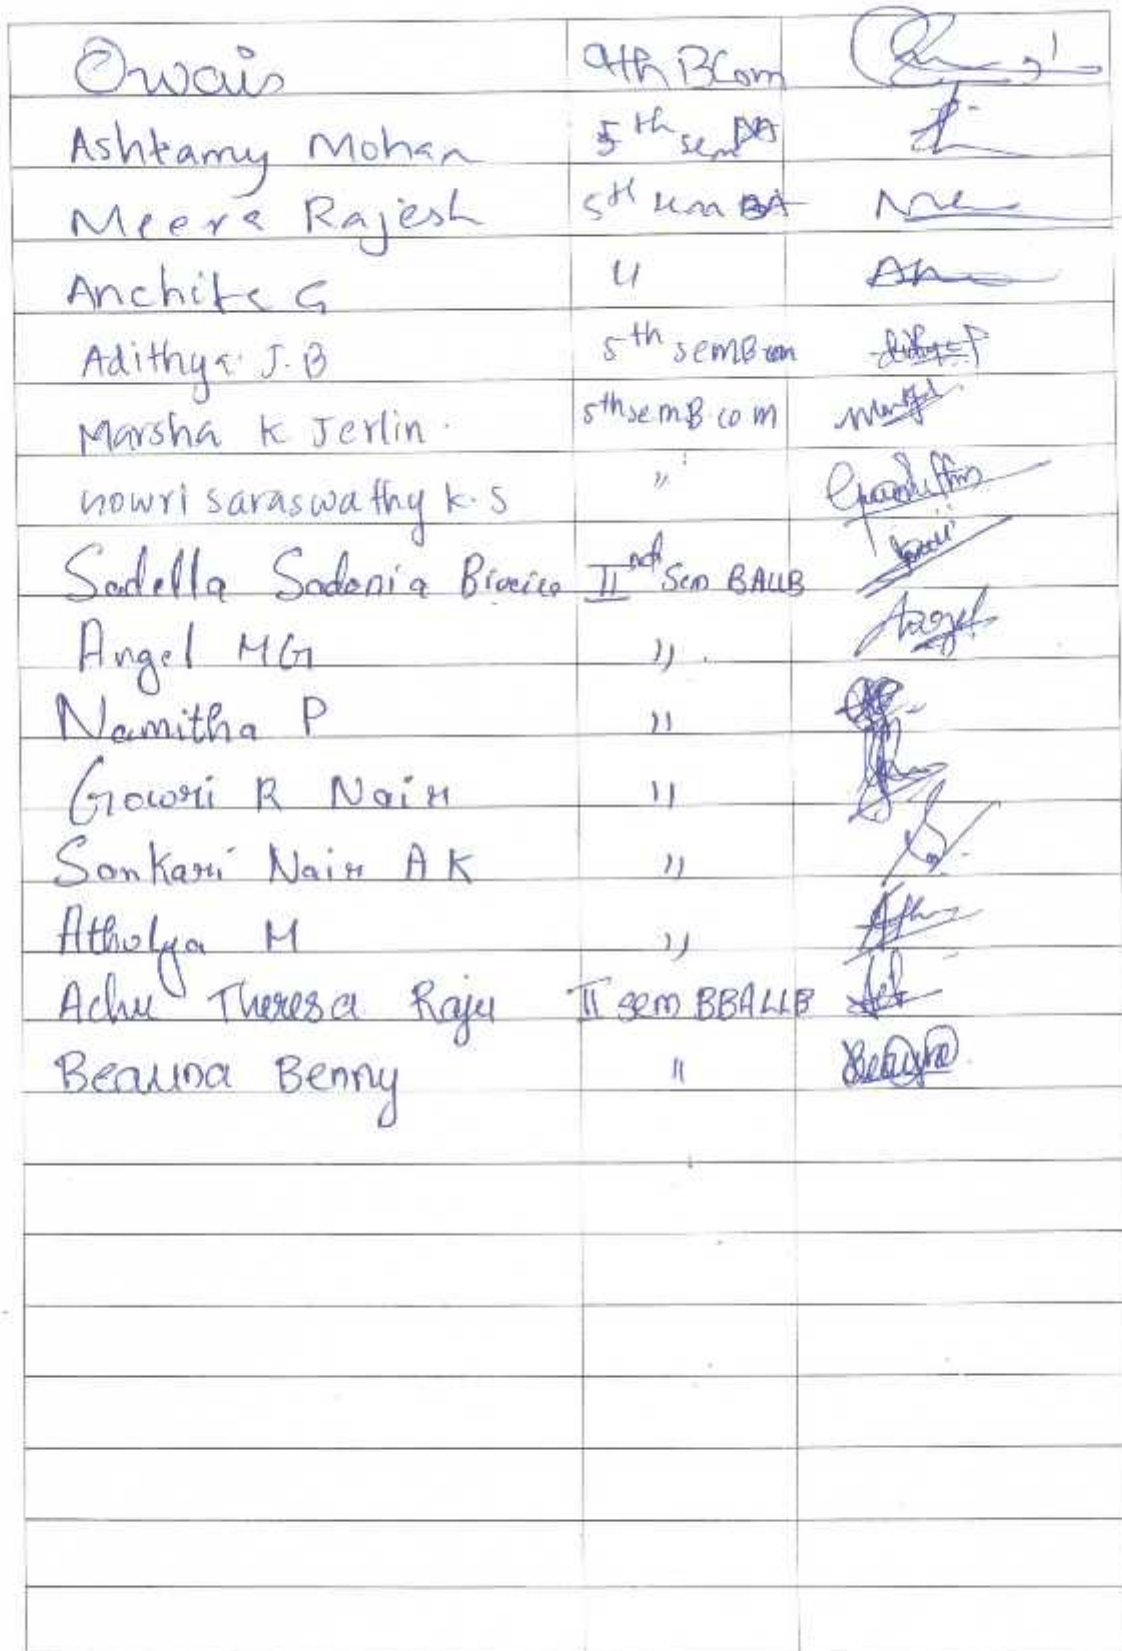 Owais 9th BCom
Ashtamy Mohan 5th sem BA
Meera Rajesh 5th sem BA
Anchita G "
Adithya J.B 5th sem B com
Marsha K Jerlin. 5th sem B.com
Gowri saraswathy K.S "
Sadella Sadania IInd Sem BALLB
Angel MG " Angel
Namitha P "
Gowri R Nair "
Sankari Nair A K "
Athulya M "
Achu Theresa Raju II sem BBALLB
Beauna Benny "